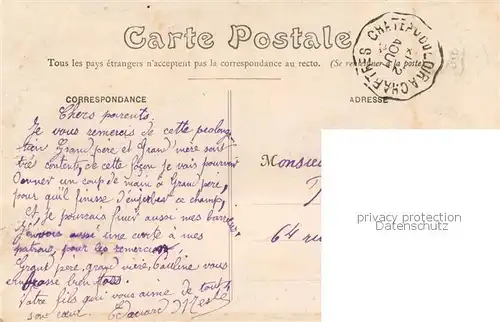 Carte Postale
Tous les pays étrangers n'acceptent pas la correspondance au recto. (Se renseigner à la poste)
CORRESPONDANCE
ADRESSE
CHATEAUDUN A CHARTRES
Chers parents.
Je vous remercie de cette prolong
tion Grand père et Grand mère sont
très contents, de cette façon je vais pouvoir
donner un coup de main à Grand père,
pour qu'il finisse d'enjerber ce champ,
Et je pourrais finir aussi mes
J'envois aussi une carte à mes
patrons, pour les remercier
Grand père, grand mère, Pauline vous
embrasse bien tous.
Votre fils qui vous aime de tout
son cœur. Edouard
Monsieu
64 ru
privacy protection
Datenschutz